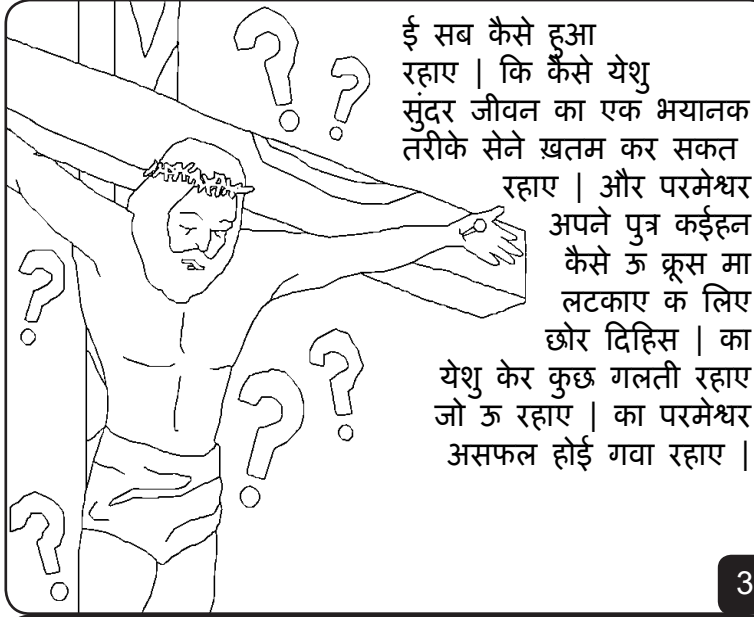 ई सब कैसे हुआ
रहाए | कि कैसे येशु
सुंदर जीवन का एक भयानक
तरीके सेने ख़तम कर सकत
रहाए | और परमेश्वर
अपने पुत्र कईहन
कैसे ऊ क्रूस मा
लटकाए क लिए
छोर दिहिस | का
येशु केर कुछ गलती रहाए
जो ऊ रहाए | का परमेश्वर
असफल होई गवा रहाए |
3